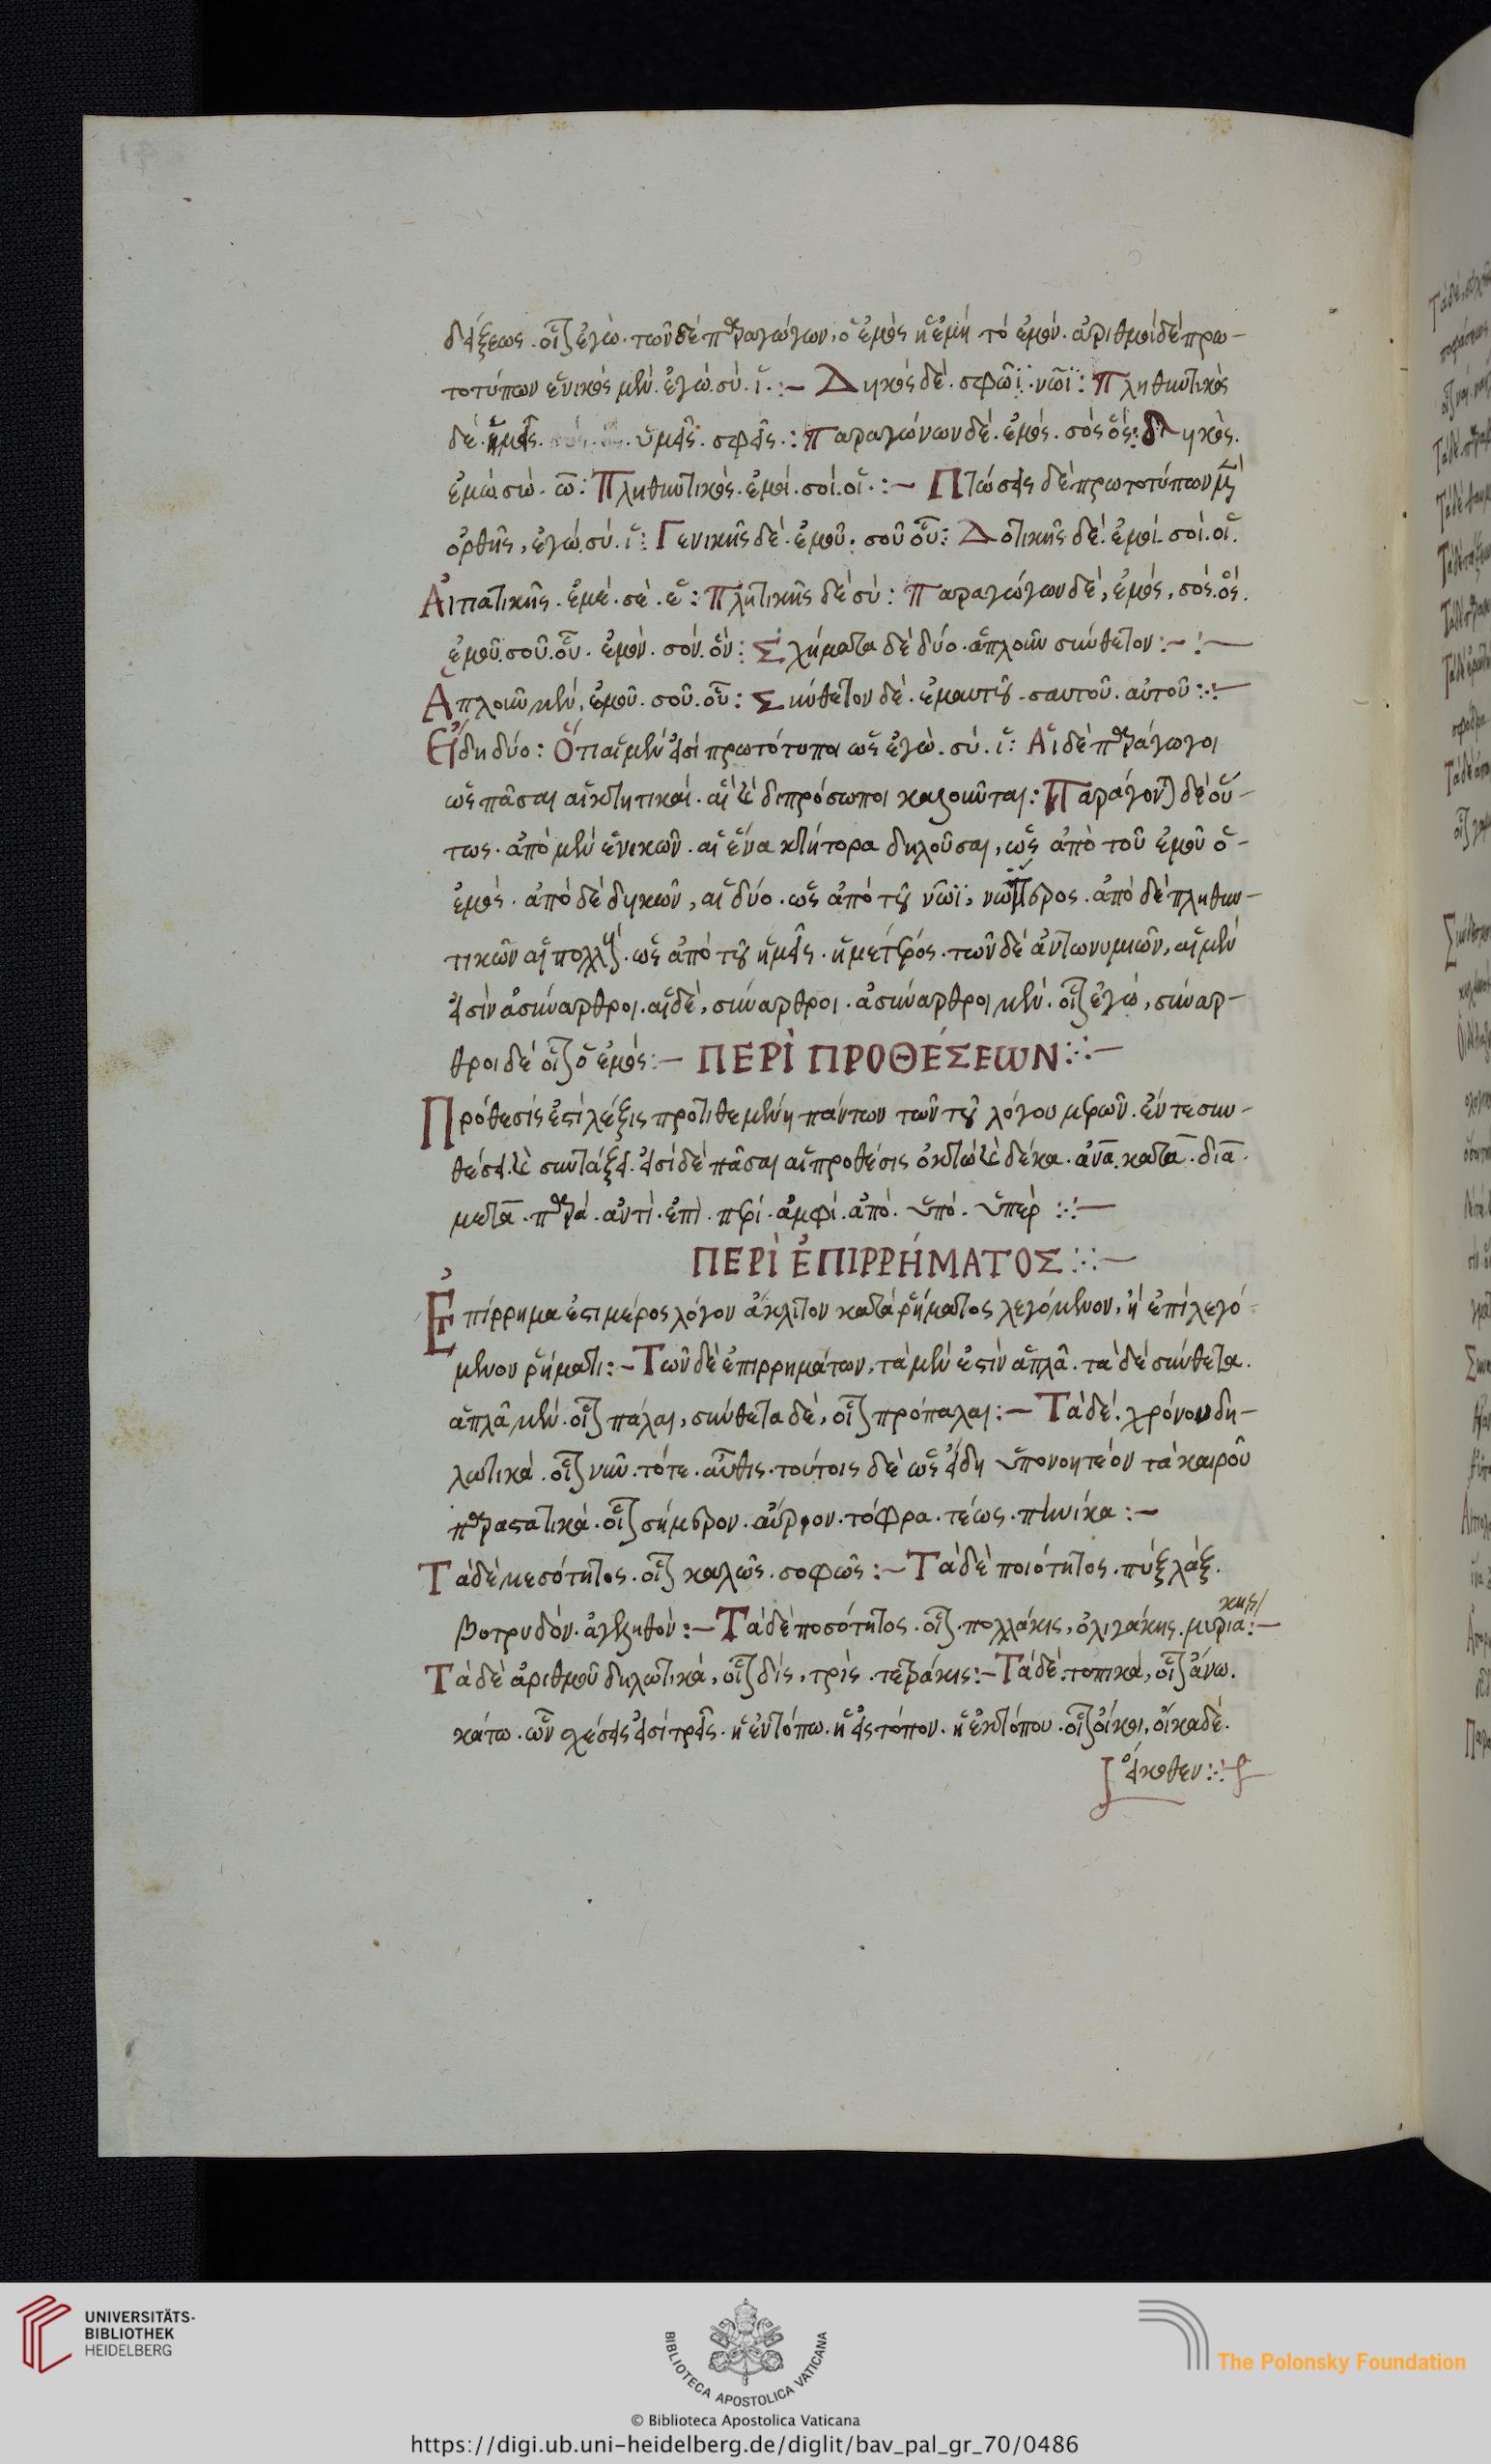 δείξεως. οἷον ἐγὼ. τῶν δὲ παραγώγων, ὁ ἐμὸς ἡ ἐμή τὸ ἐμόν. ἀριθμοὶ δὲ πρω-
τοτύπων ἑνικὸς μὲν. ἐγώ. σύ. ἵ. :- Δυικὸς δὲ. σφῶϊ. νῶϊ: Πληθυντικὸς
δὲ. ἡμεῖς. ὑμεῖς. σφεῖς. : Παραγώγων δὲ. ἐμὸς. σὸς ὅς: δυικὸς.
ἐμὼ. σὼ. ὥ: Πληθυντικὸς. ἐμοί. σοί. οἵ. :- Πτώσεις δὲ πρωτοτύπων μὲν
ὀρθῆς, ἐγώ. σύ. ἵ: Γενικῆς δὲ. ἐμοῦ. σοῦ οὗ: Δοτικῆς δὲ. ἐμοί. σοί. οἵ.
Αἰτιατικῆς. ἐμέ. σὲ. ἕ: Κλητικῆς δὲ σύ: Παραγώγων δὲ, ἐμός, σός. ὅς.
ἐμοῦ. σοῦ. οὗ. ἐμὸν. σόν. ὅν: Σχήματα δὲ δύο. ἁπλοῦν σύνθετον :- :-
Ἁπλοῦν μὲν, ἐμοῦ. σοῦ. οὗ: Σύνθετον δὲ. ἐμαυτοῦ. σαυτοῦ. αὑτοῦ :·:-
Εἴδη δύο: Ὅτι αἱ μὲν εἰσὶ πρωτότυποι ὡς ἐγὼ. σύ. ἵ: Αἱ δὲ παράγωγοι
ὡς πᾶσαι αἱ κτητικαί. αἳ καὶ διπρόσωποι καλοῦνται: Παράγονται δὲ οὕ-
τως. ἀπὸ μὲν ἑνικῶν. αἱ ἕνα κτήτορα δηλοῦσαι, ὡς ἀπὸ τοῦ ἐμοῦ ὁ-
ἐμός. ἀπὸ δὲ δυικῶν, αἱ δύο. ὡς ἀπὸ τοῦ νῶϊ, νωΐτερος. ἀπὸ δὲ πληθυν-
τικῶν αἱ πολλούς. ὡς ἀπὸ τοῦ ἡμεῖς. ἡμέτερος. τῶν δὲ ἀντωνυμιῶν, αἱ μὲν
εἰσὶν ἀσύναρθροι. αἱ δὲ, σύναρθροι. ἀσύναρθροι μὲν. οἷον ἐγώ, σύναρ-
θροι δὲ οἷον ὁ ἐμός :- ΠΕΡῚ ΠΡΟΘΈΣΕΩΝ :·:-
Πρόθεσίς ἐστὶ λέξις προτιθεμένη πάντων τῶν τοῦ λόγου μερῶν. ἔν τε συν-
θέσει καὶ συντάξει. εἰσὶ δὲ πᾶσαι αἱ προθέσις ὀκτὼ καὶ δέκα. ἀνὰ. κατὰ. διὰ.
μετὰ. παρά. ἀντὶ. ἐπὶ. περὶ. ἀμφὶ. ἀπό. ὑπό. ὑπέρ :·:-
ΠΕΡῚ ἘΠΙΡΡΉΜΑΤΟΣ :·:-
Ἐπίρρημα ἐστι μέρος λόγου ἄκλιτον κατὰ ῥήματος λεγόμενον, ἢ ἐπιλεγό-
μενον ῥήματι :- Τῶν δὲ ἐπιρρημάτων, τὰ μὲν ἐστὶν ἁπλᾶ. τὰ δὲ σύνθετα.
ἁπλᾶ μὲν. οἷον πάλαι, σύνθετα δὲ, οἷον πρόπαλαι :- Τὰ δὲ. χρόνου δη-
λωτικά. οἷον νῦν. τότε. αὖθις. τούτοις δὲ ὡς εἴδη ὑπονοητέον τὰ καιροῦ
παραστατικά. οἷον σήμερον. αὔριον. τόφρα. τέως. πηνίκα :-
Τὰ δὲ μεσότητος. οἷον καλῶς. σοφῶς :- Τὰ δὲ ποιότητος. πύξ λάξ.
βοτρυδόν. ἀγεληδόν :- Τὰ δὲ ποσότητος. οἷον. πολλάκις, ὀλιγάκις. μυριάκις :-
Τὰ δὲ ἀριθμοῦ δηλωτικά, οἷον δίς, τρὶς. τετράκις :- Τὰ δὲ. τοπικά, οἷον ἄνω.
κάτω. ὧν σχέσεις εἰσὶ τρεῖς. ἡ ἐν τόπω. ἡ εἰς τόπον. ἡ ἐκ τόπου. οἷον οἴκοι, οἴκαδε.
οἴκοθεν :·:-
UNIVERSITÄTS-
BIBLIOTHEK
HEIDELBERG
BIBLIOTECA APOSTOLICA VATICANA
The Polonsky Foundation
© Biblioteca Apostolica Vaticana
https://digi.ub.uni-heidelberg.de/diglit/bav_pal_gr_70/0486